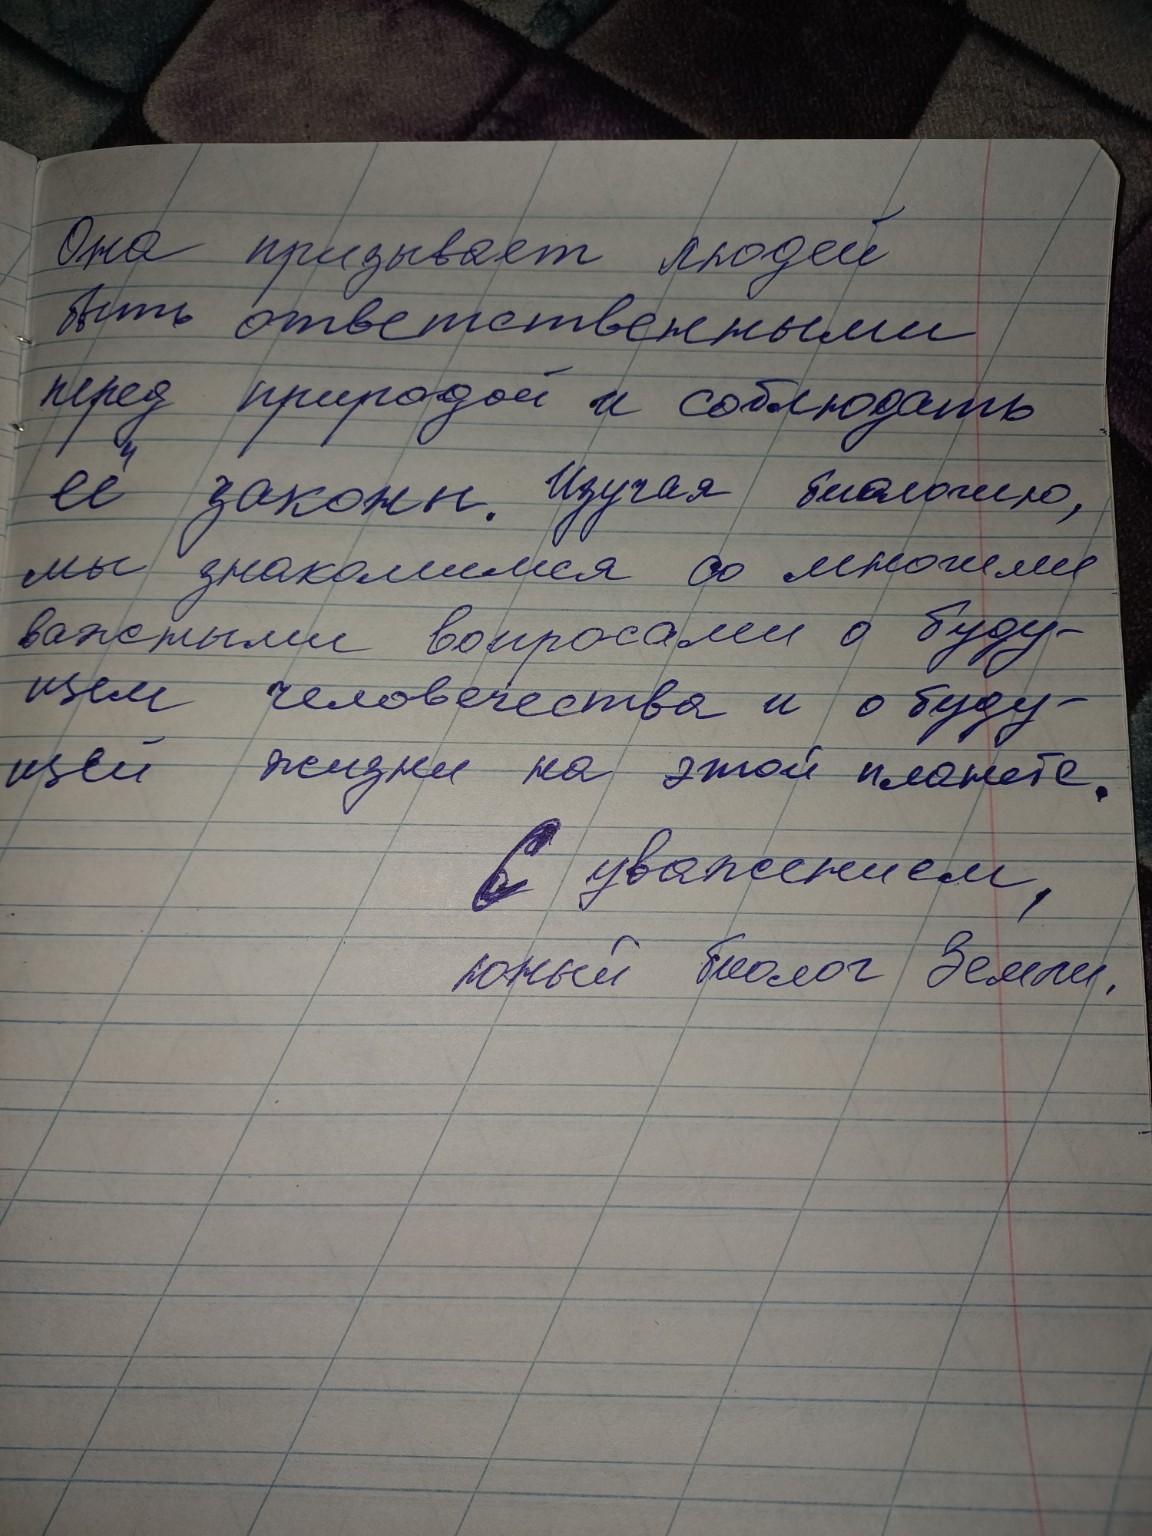 Она призывает людей
быть ответственными
перед природой и соблюдать
её законы. Изучая биологию,
мы знакомимся со многими
важными вопросами о буду-
щем человечества и о буду-
щей жизни на этой планете.
С уважением,
юный биолог Земли.